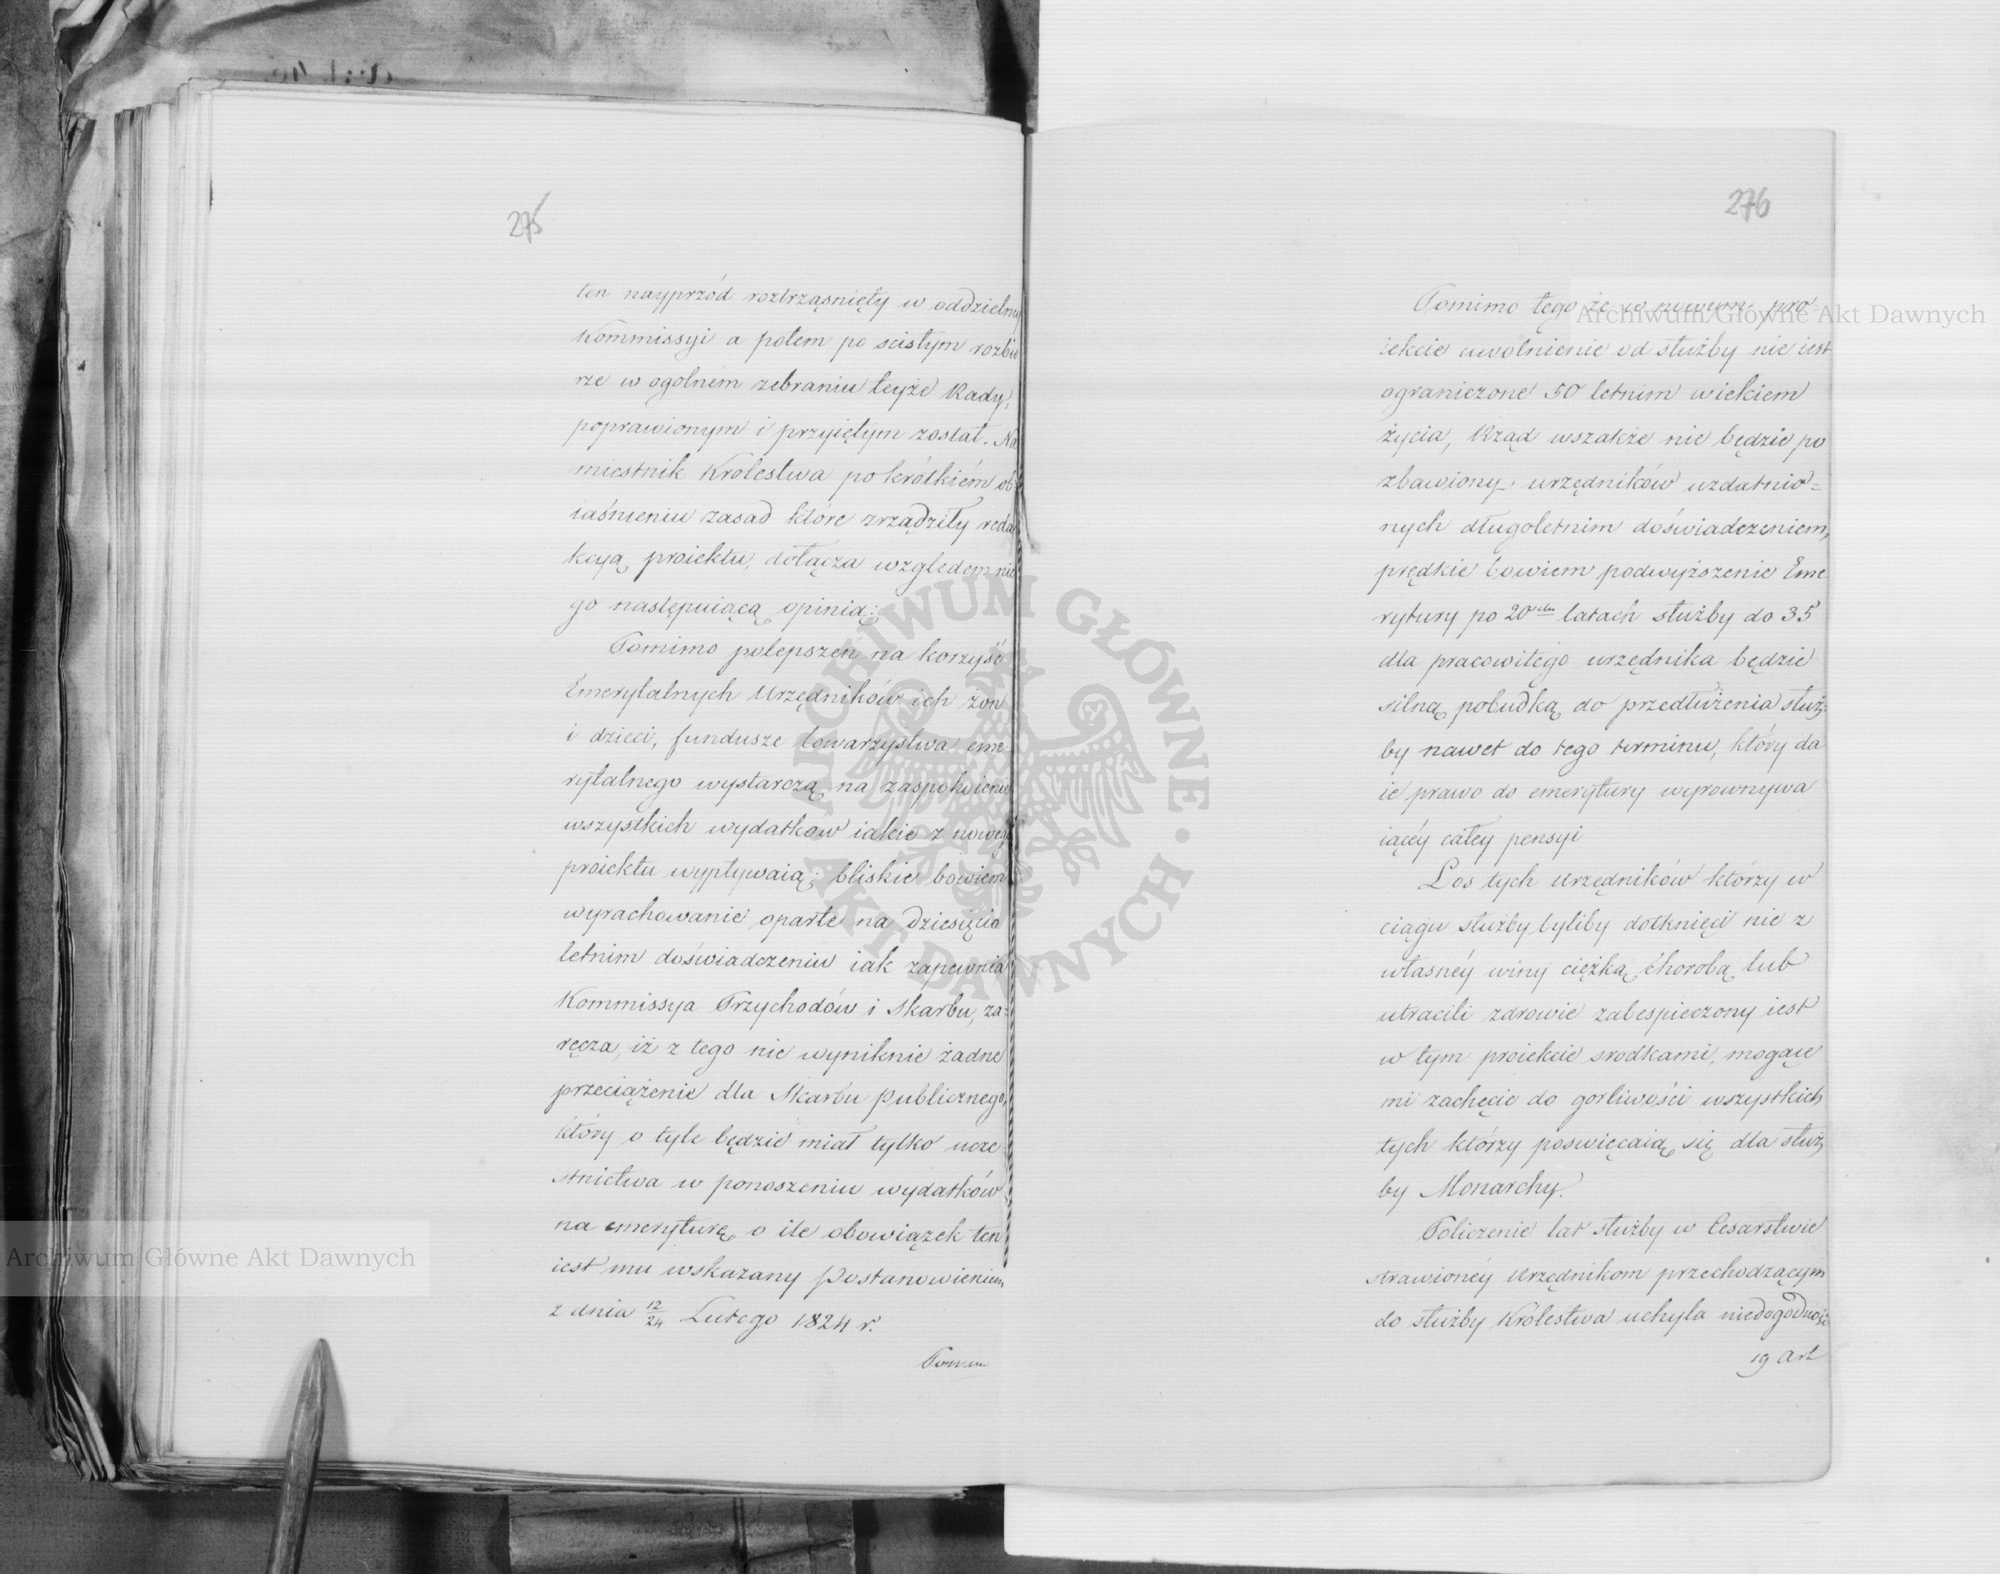 275
ten nayprzód roztrząśnięty w oddzielney
Kommissyi a potem po scisłym rozbio
rze w ogolném zebraniu teyże Rady,
poprawionym i przyiętym został. Na
miestnik Królestwa po krótkiém ob
iaśnieniu zasad które zrządziły reda
kcyą proiektu, dołącza względem nie
go następuiącą opinią:
Pomimo polepszeń na korzyść
Emerytalnych Urzędników ich żon
i dzieci, fundusze towarzystwa eme
rytalnego wystarczą na zaspokoienie
wszystkich wydatkow iakie z nowego
proiektu wypływaią; bliskie bowiem
wyrachowanie oparte na dziesięcio
letnim doświadczeniu iak zapewnia
Kommissya Przychodów i Skarbu, za=
ręcza, iż z tego nie wyniknie żadne
przeciążenie dla Skarbu publicznego,
który o tyle będzie miał tylko ucze
stnictwa w ponoszeniu wydatków
na emeryturę o ile obowiązek ten
iest mu wskazany Postanowieniem
z dnia 12/24 Lutego 1824 r.
276
Pomimo tego że w nowym pro=
iekcie uwolnienie od służby nie iest
ograniczone 50 letnim wiekiem
życia, Rząd wszakże nie będzie po
zbawiony urzędników uzdatnio=
nych długoletnim doświadczeniem,
prędkie bowiem podwyższenie Eme
rytury po 20stu latach służby do 35
dla pracowitego urzędnika będzie
silną pobudką do przedłużenia służ=
by nawet do tego terminu, który da
ie prawo do emerytury wyrownywa
iącéy całey pensyi
Los tych Urzędników którzy w
ciągu służby byliby dotknięci nie z
własnéy winy ciężką chorobą lub
utracili zdrowie zabespieczony iest
w tym proiekcie srodkami, mogące
mi zachęcie do gorliwości wszystkich
tych którzy poswięcaią się dla służ
by Monarchy.
Policzenie lat służby w Cesarstwie
strawionéy Urzędnikom przechodzącym
do służby Królestwa uchyla niedogodność
19 Art
Archiwum Główne Akt Dawnych
Archiwum Główne Akt Dawnych
ARCHIWUM GŁÓWNE · AKT DAWNYCH ·